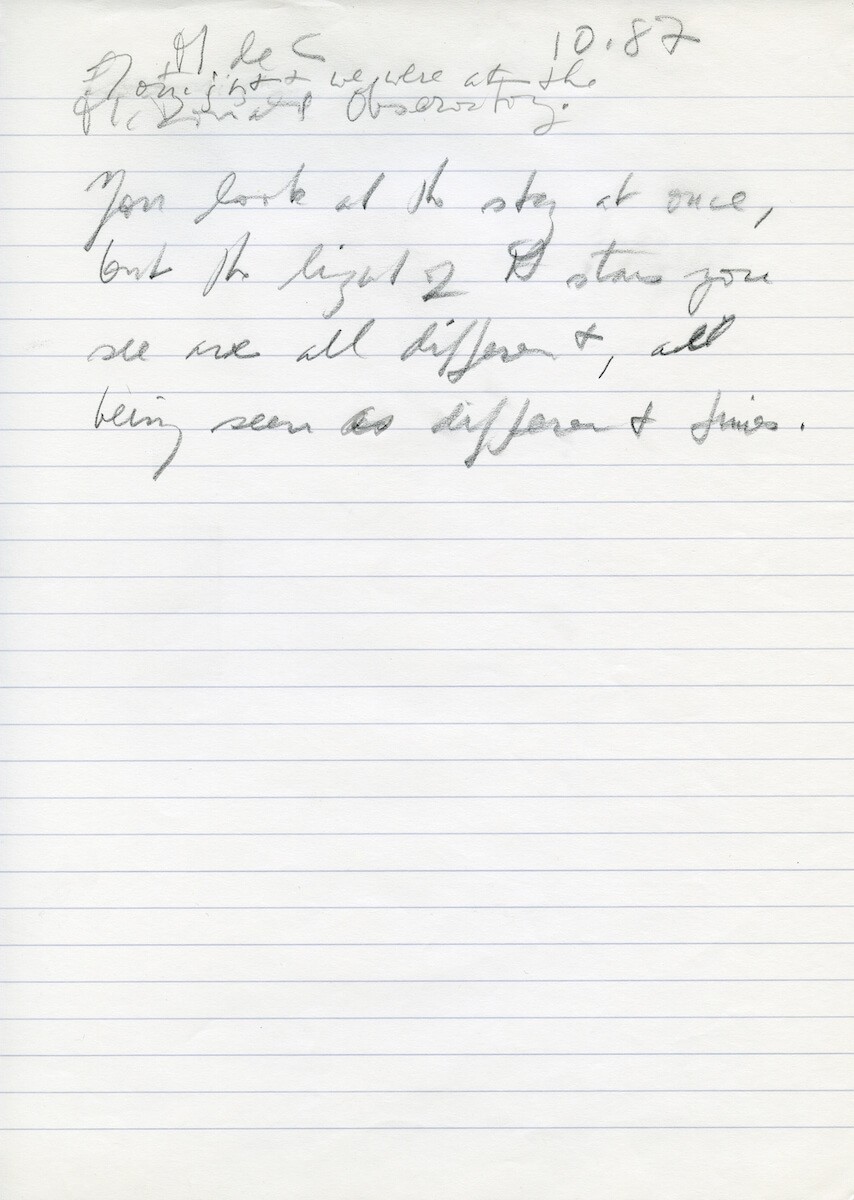 M de C 10.87
we were at the
McDonald Observatory.
You look at the sky at once,
but the light of the stars you
see are all different, all
being seen as different times.